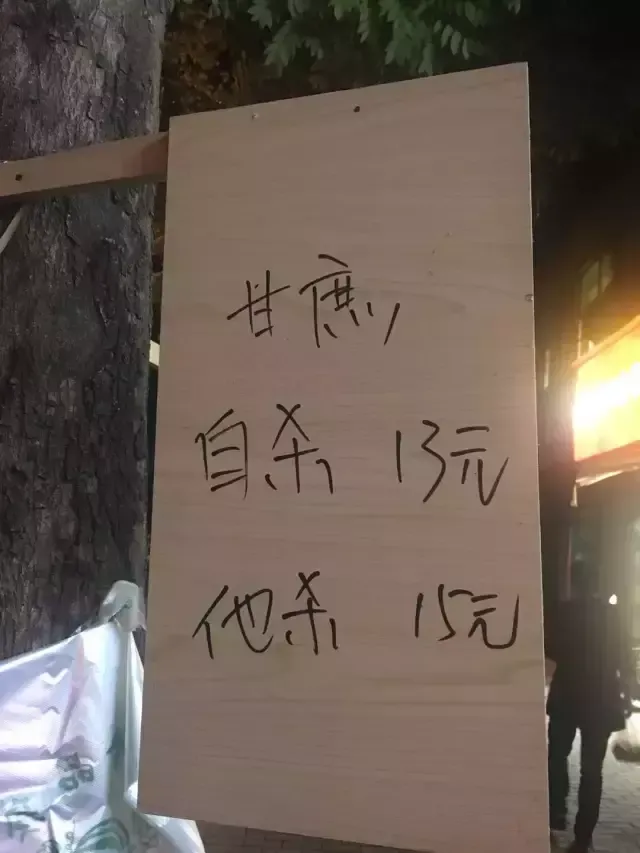 甘蔗
自杀 13元
他杀 15元